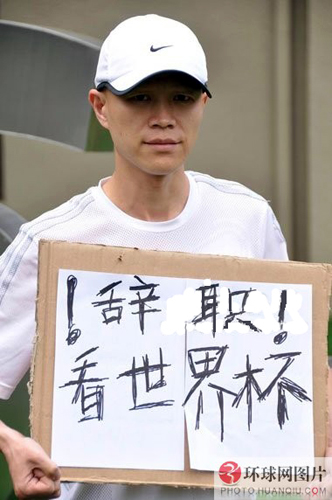 ！辞职！
看世界杯
环球网图片
PHOTO.HUANQIU.COM